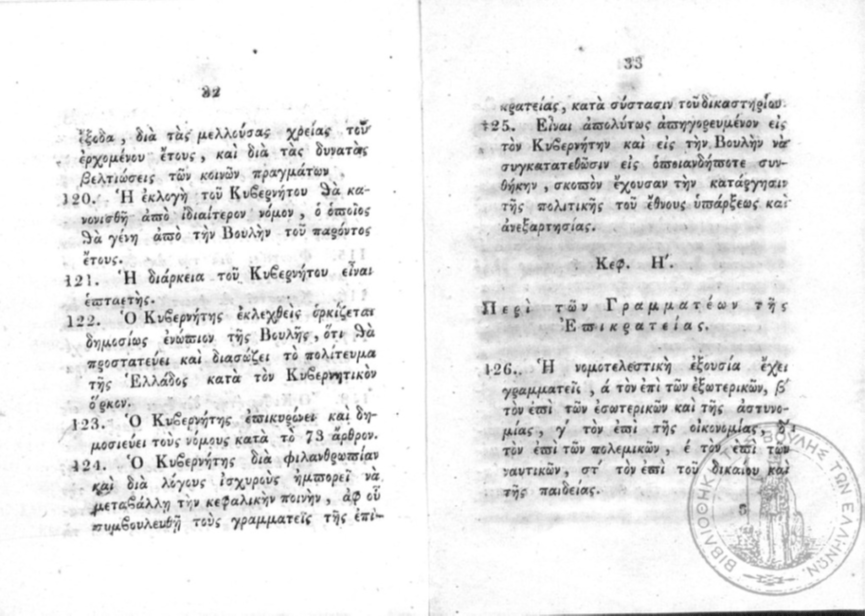 32
ἔξοδα, διὰ τὰς μελλούσας χρείας τοῦ
ἐρχομένου ἔτους, καὶ διὰ τὰς δυνατὰς
βελτιώσεις τῶν κοινῶν πραγμάτων
120. Ἡ ἐκλογὴ τοῦ Κυβερνήτου θὰ κα-
νονισθῇ ἀπὸ ἰδιαίτερον νόμον, ὁ ὁποῖος
θὰ γένῃ ἀπὸ τὴν Βουλὴν τοῦ παρόντος
ἔτους.
121. Ἡ διάρκεια τοῦ Κυβερνήτου εἶναι
ἑπταετής.
122. Ὁ Κυβερνήτης ἐκλεχθεὶς ὁρκίζεται
δημοσίως ἐνώπιον τῆς Βουλῆς, ὅτι θὰ
προστατεύει καὶ διασώζει τὸ πολίτευμα
τῆς Ἑλλάδος κατὰ τὸν Κυβερνητικὸν
ὅρκον.
123. Ὁ Κυβερνήτης ἐπικυρώνει καὶ δη-
μοσιεύει τοὺς νόμους κατὰ τὸ 73 ἄρθρον.
124. Ὁ Κυβερνήτης διὰ φιλανθρωπίαν
καὶ διὰ λόγους ἰσχυροὺς ἠμπορεῖ νὰ
μεταβάλλῃ τὴν κεφαλικὴν ποινὴν, ἀφ οὗ
συμβουλευθῇ τοὺς γραμματεῖς τῆς ἐπι-
33
κρατείας, κατὰ σύστασιν τοῦ δικαστηρίου.
125. Εἶναι ἀπολύτως ἀπηγορευμένον εἰς
τὸν Κυβερνήτην καὶ εἰς τὴν Βουλὴν νὰ
συγκατατεθῶσιν εἰς ὁποιανδήποτε συν-
θήκην, σκοπὸν ἔχουσαν τὴν κατάργησιν
τῆς πολιτικῆς τοῦ ἔθνους ὑπάρξεως καὶ
ἀνεξαρτησίας.
Κεφ. Η΄.
Περὶ τῶν Γραμματέων τῆς
Ἐπικρατείας.
126. Ἡ νομοτελεστικὴ ἐξουσία ἔχει
γραμματεῖς, ά τὸν ἐπὶ τῶν ἐξωτερικῶν, β΄
τὸν ἐπὶ τῶν ἐσωτερικῶν καὶ τῆς ἀστυνο-
μίας, γ΄ τὸν ἐπὶ τῆς οἰκονομίας, δ΄
τὸν ἐπὶ τῶν πολεμικῶν, έ τὸν ἐπὶ τῶν
ναυτικῶν, στ΄ τὸν ἐπὶ τοῦ δικαίου καὶ
τῆς παιδείας.
ΒΙΒΛΙΟΘΗΚΗ ΤΗΣ ΒΟΥΛΗΣ ΤΩΝ ΕΛΛΗΝΩΝ